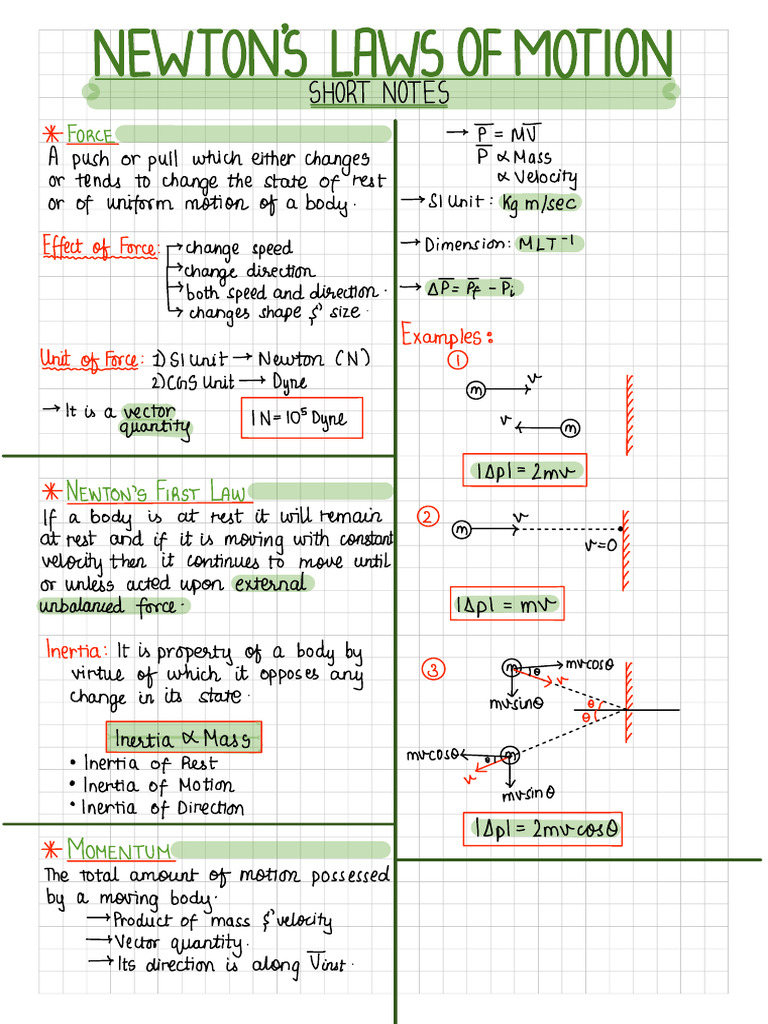 NEWTON'S LAWS OF MOTION
SHORT NOTES
* FORCE
A push or pull which either changes
or tends to change the state of rest
or of uniform motion of a body.
Effect of Force: → change speed
→ change direction
→ both speed and direction.
→ changes shape & size.
Unit of Force: 1) SI Unit → Newton (N)
2) CGS Unit → Dyne
→ It is a vector
quantity
1N = 10⁵ Dyne
* NEWTON'S FIRST LAW
If a body is at rest it will remain
at rest and if it is moving with constant
velocity then it continues to move until
or unless acted upon external
unbalanied force.
Inertia: It is property of a body by
virtue of which it opposes any
change in its state.
Inertia ∝ Mass
• Inertia of Rest
• Inertia of Motion
• Inertia of Direction
* MOMENTUM
The total amount of motion possessed
by a moving body.
→ Product of mass & velocity
→ Vector quantity.
→ Its direction is along V̅inst.
→ P̅ = MV̅
P̅ ∝ Mass
∝ Velocity
→ SI Unit: Kg m/sec
→ Dimension: MLT⁻¹
→ ΔP̅ = P̅f − P̅i
Examples:
1
m v
v m
|Δp| = 2mv
2
m v
v=0
|Δp| = mv
3
m θ v mvcosθ
mvsinθ
θ
θ
mvcosθ θ m
v
mvsinθ
|Δp| = 2mvcosθ